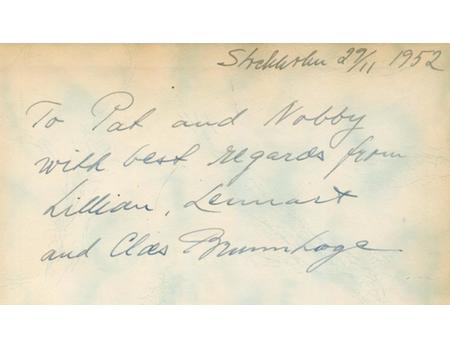 Stockholm 29/11 1952
To Pat and Nobby
with best regards from
Lillian, Lennart
and Clas Brunnhage